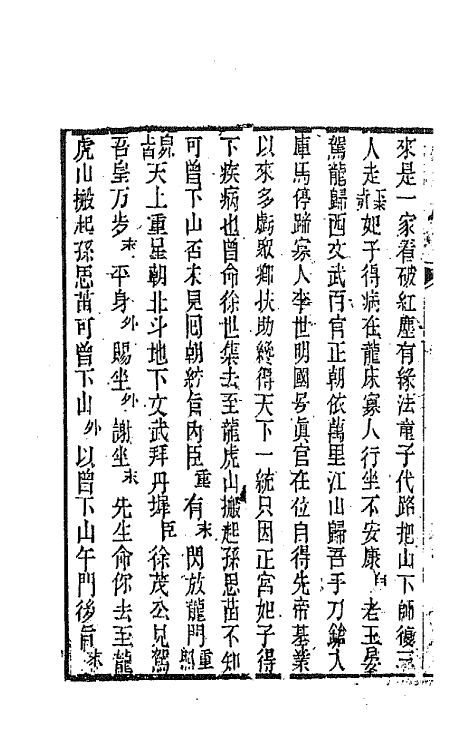 來是一家看破紅塵有緣法童子代路把山下師復三
人走妃子得病在龍床寡人行坐不安康白老王晏
駕龍歸西文武百官正朝依萬里江山歸吾手刀鎗入
庫馬停蹄寡人李世明國号眞官在位自得先帝基業
以來多虧眾鄉扶助纔得天下一統只因正宮妃子得
下疾病也曾命徐世勣去至龍虎山搬起孫思苗不知
可曾下山否未見回朝紡旨內臣重有末閃放龍門重照
旨天上重星朝北斗地下文武拜丹墀臣徐茂公見駕
吾皇万歩末平身外賜坐外謝坐末先生命你去至龍
虎山搬起孫思苗可曾下山外以曾下山午門後旨末